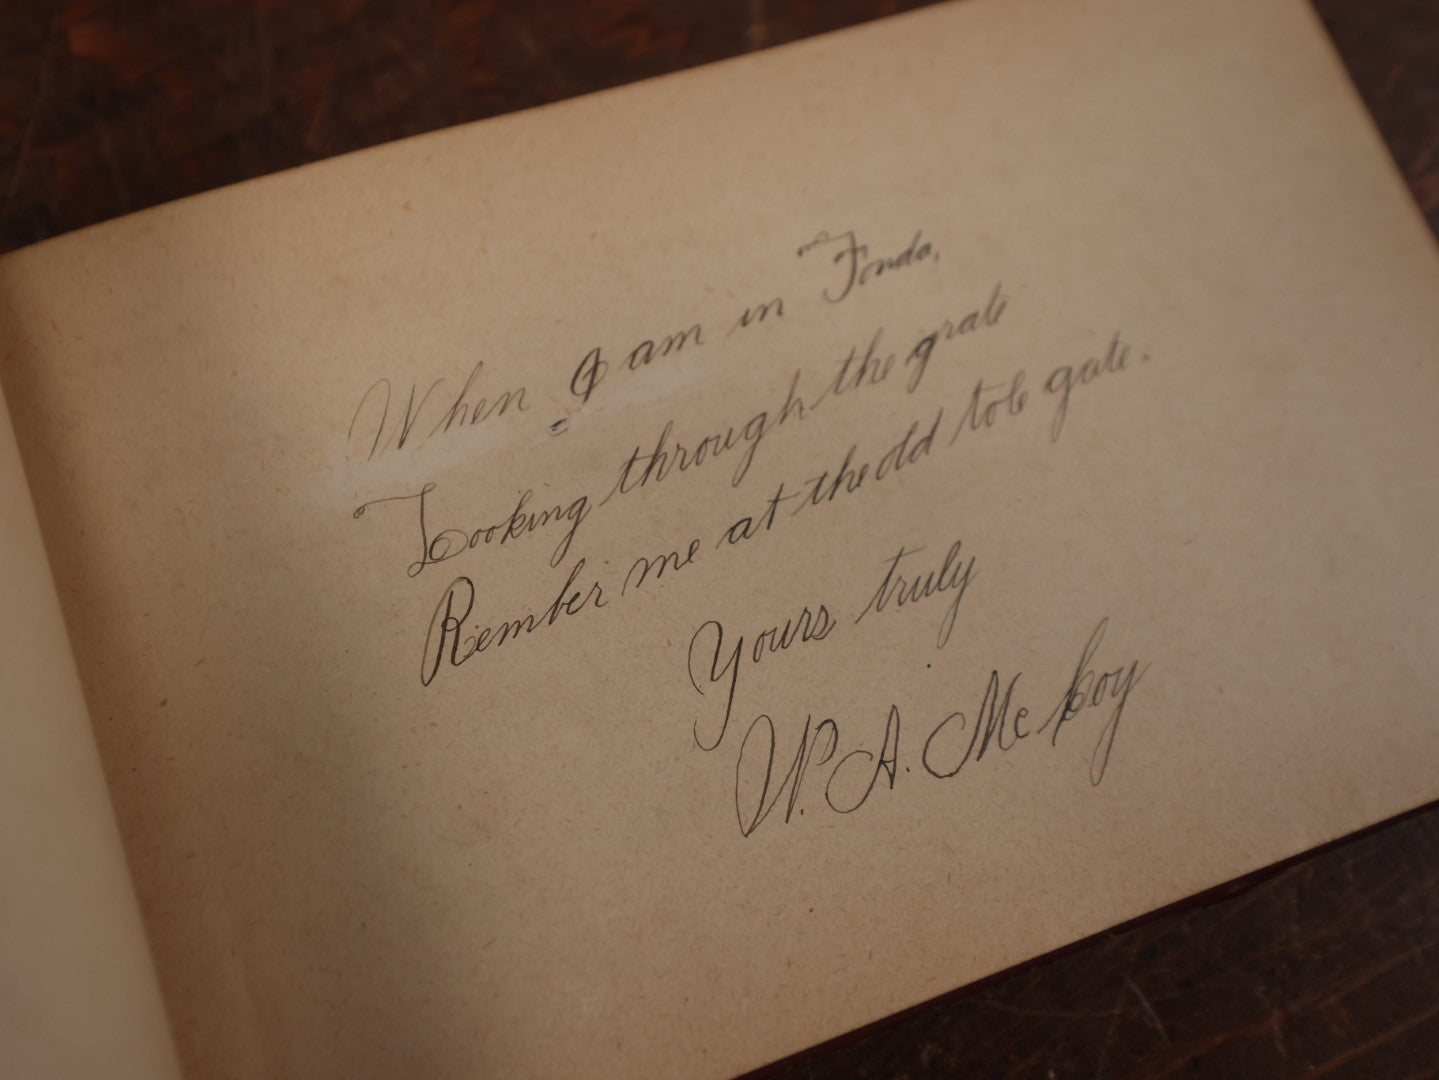 When I am in Fonda,
Looking through the grate
Rember me at the old tole gate.
Yours truly
W. A. McCoy